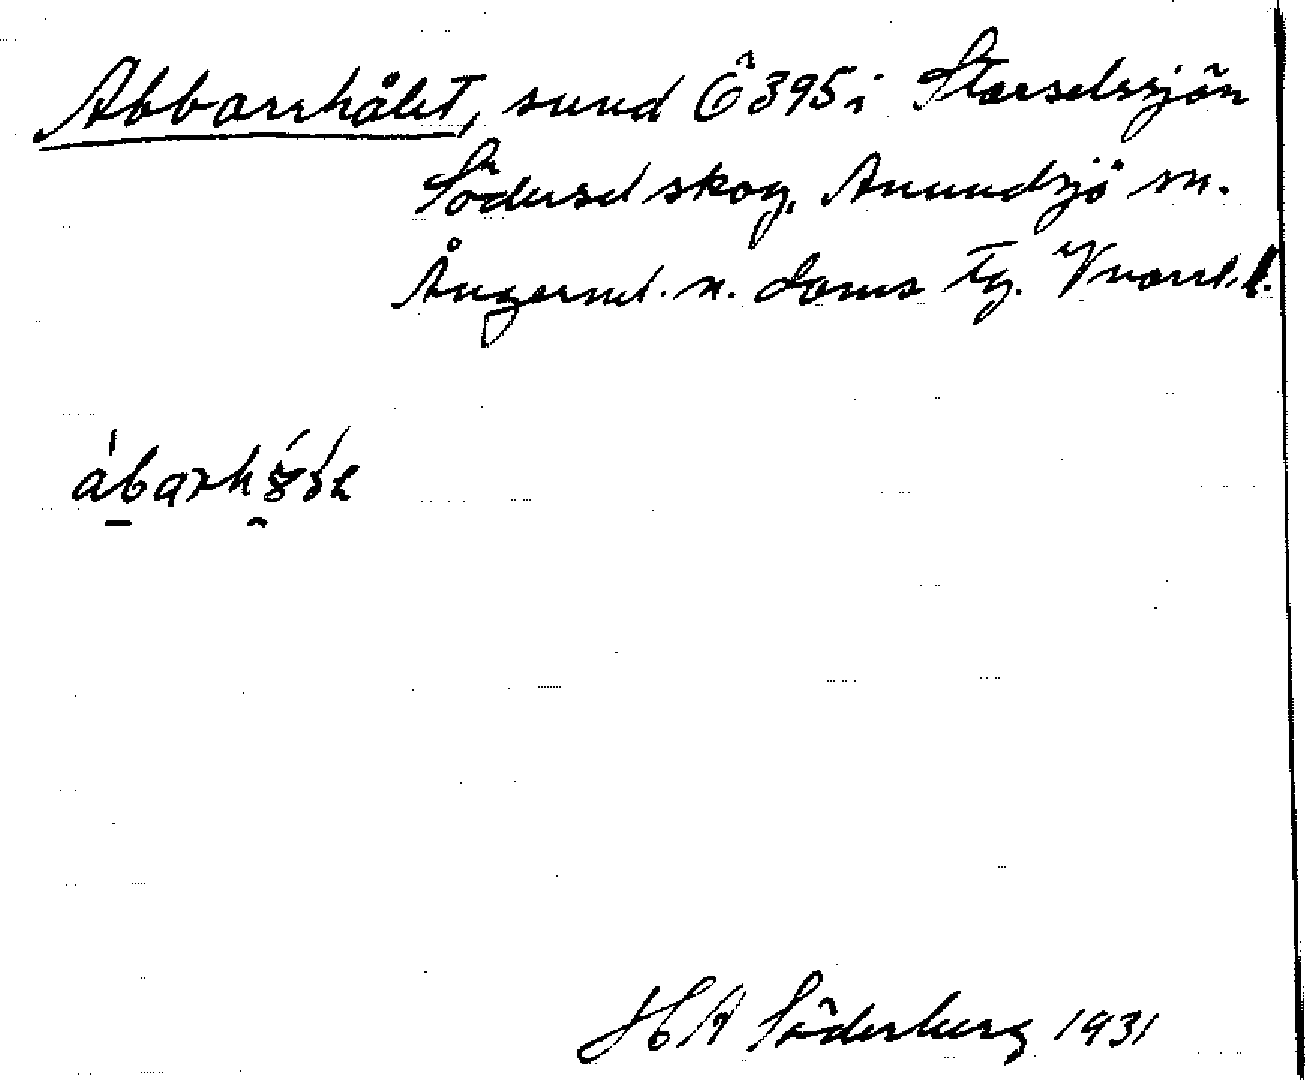 Abborrhålet, sund Ö 395 i Storselssjön
Södersel skog, Anundsjö sn.
Ångerml. n. doms tg. Vnorrl. l.
ábarh
H A Söderberg 1931